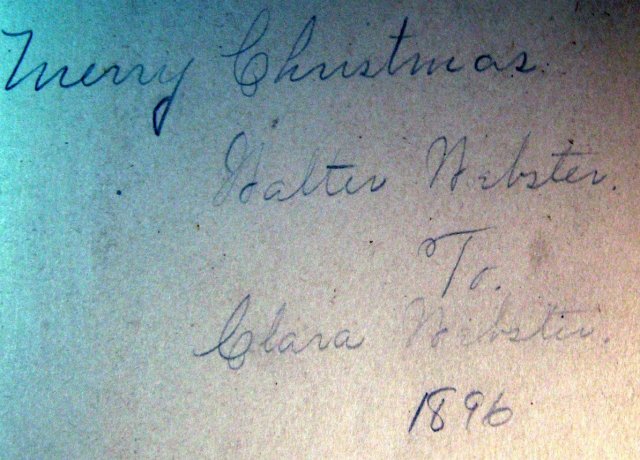 Merry Christmas
Walter Webster.
To.
Clara Webster.
1896